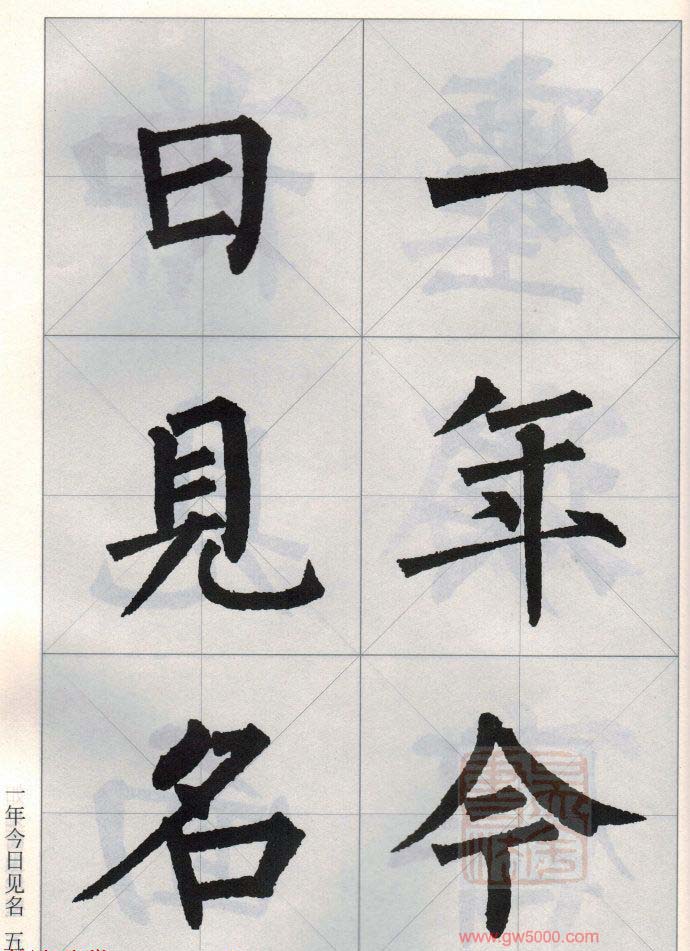 一年今
日見名
一年今日见名 五
www.gw5000.com